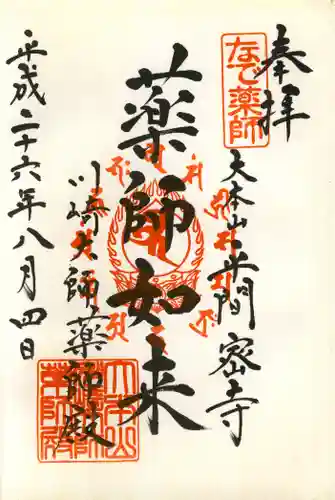 奉拝
なで薬師
大本山平間密寺
薬師如来
川崎大師薬師殿
平成二十六年八月四日